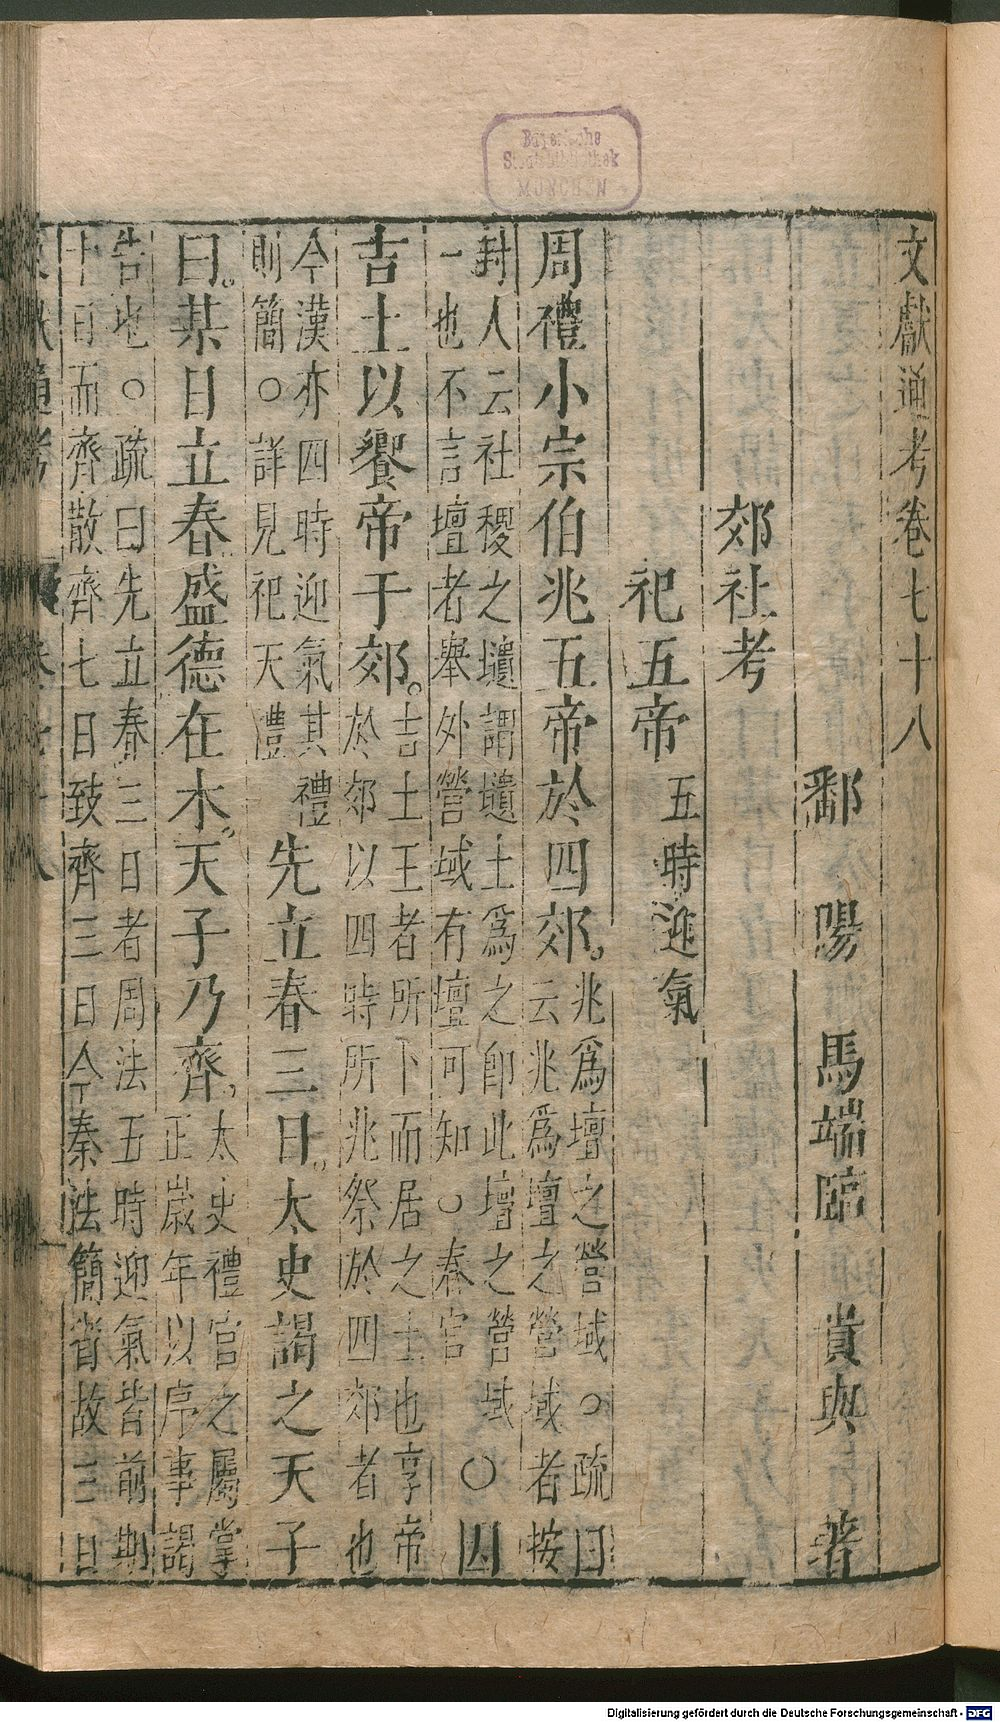 文獻通考卷七十八
鄱 陽 馬端臨 貴與 著
郊社考
祀五帝 五時迎氣
周禮小宗伯兆五帝於四郊。兆爲壇之營域○疏曰
云兆爲壇之營域者按
封人云社稷之壝謂壝土爲之卽此壇之營域
一也不言壇者舉外營域有壇可知○春官
○因
吉土以饗帝于郊。吉土王者所卜而居之土也享帝
於郊以四時所兆祭於四郊者也
今漢亦四時迎氣其禮
則簡○詳見祀天禮
先立春三日。太史謁之天子
曰。某日立春盛德在木。天子乃齊。太史禮官之屬掌
正歲年以序事謁
告也○疏曰先立春三日者周法五時迎氣皆前期
十日而齊散齊七日致齊三日今秦法簡省故三日
Bayerische
Staatsbibliothek
MÜNCHEN
Digitalisierung gefördert durch die Deutsche Forschungsgemeinschaft - DFG